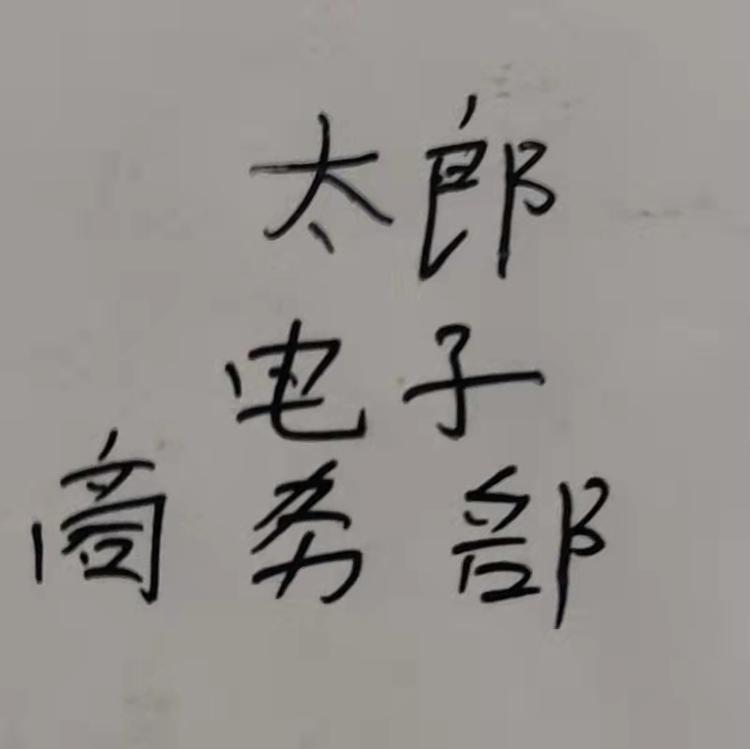 太郎
电子
商务部